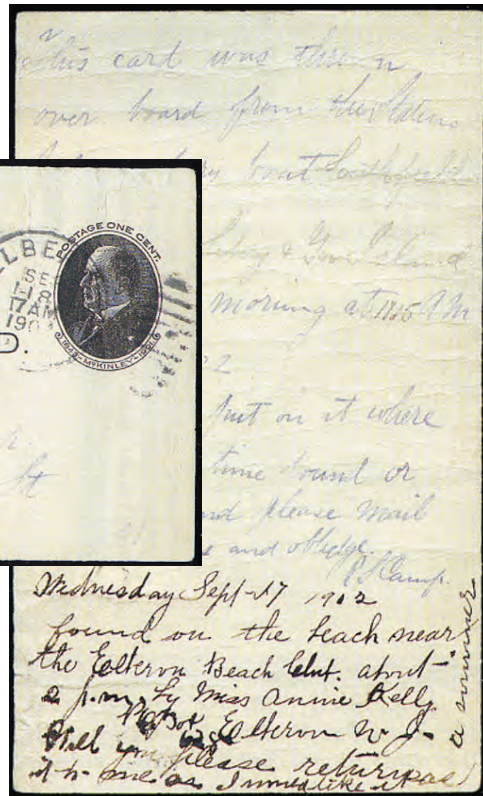 This card was thrown
over board from the Staten
boat
& Gov Island
morning at 11.15 AM
2
put on it where
time found or
and please mail
and obledge.
Camp.
ELBE
SE
18
7 AM
190
POSTAGE ONE CENT.
1843 - McKINLEY - 1901
r.
St
Wednesday Sept-17 1902
found on the beach near
the Elberon Beach Club. about
2 p.m. by Miss Annie Kelly
PO Box Elberon N-J-
Will you please return
it to me as I would like it
a souvenir